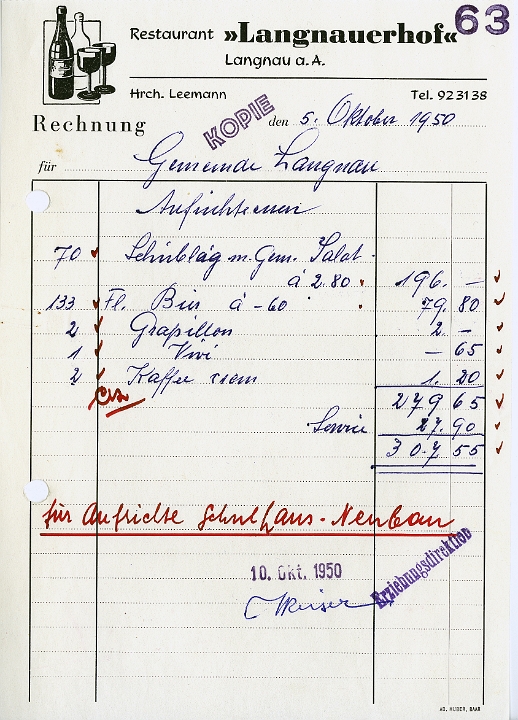 63
Restaurant »Langnauerhof«
Langnau a. A.
Hrch. Leemann Tel. 923138
KOPIE
Rechnung den 5. Oktober 1950
für Gemeinde Langnau
Aufrichteessen
70 Schüblig m. Gem. Salat
à 2.80 196. –
133 Fl. Bier à -60 79. 80
2 Grapillon 2. –
1 Vivi – 65
2 Kaffee creme 1. 20
279 65
Servic 27. 90
307 55
für Aufrichte Schulhaus-Neubau
10. Okt. 1950
Erziehungsdirektion
AD. HUBER, BAAR